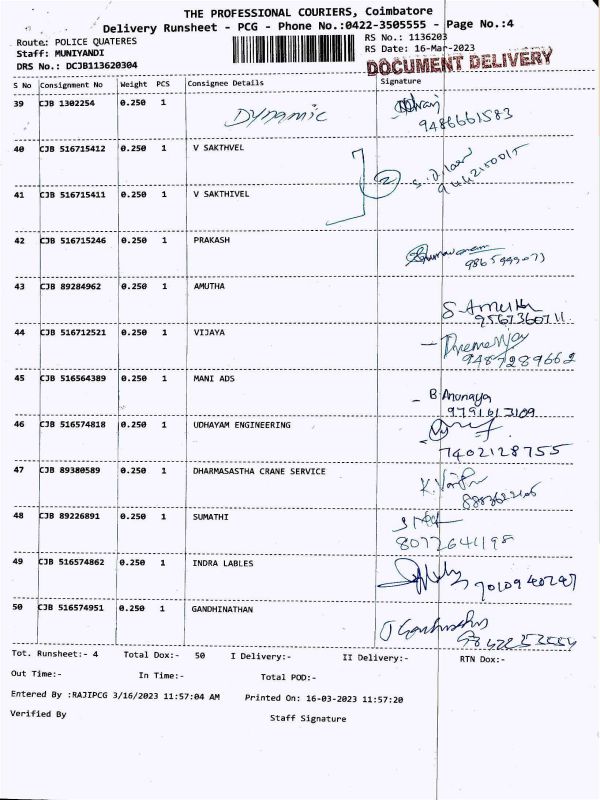 THE PROFESSIONAL COURIERS, Coimbatore
Delivery Runsheet - PCG - Phone No.:0422-3505555 - Page No.:4
Route: POLICE QUATERES
RS No.: 1136203
Staff: MUNIYANDI
RS Date: 16-Mar-2023
DRS No.: DCJB113620304
DOCUMENT DELIVERY
S No Consignment No Weight PCS Consignee Details Signature
39 CJB 1302254 0.250 1 Dynamic
9486661583
40 CJB 516715412 0.250 1 V SAKTHVEL
2
41 CJB 516715411 0.250 1 V SAKTHIVEL
42 CJB 516715246 0.250 1 PRAKASH
43 CJB 89284962 0.250 1 AMUTHA
S. Amutha
9567360711
44 CJB 516712521 0.250 1 VIJAYA
9487289662
45 CJB 516564389 0.250 1 MANI ADS
B. Ananaya
46 CJB 516574818 0.250 1 UDHAYAM ENGINEERING
7402128755
47 CJB 89380589 0.250 1 DHARMASASTHA CRANE SERVICE
48 CJB 89226891 0.250 1 SUMATHI
8072644198
49 CJB 516574862 0.250 1 INDRA LABLES
50 CJB 516574951 0.250 1 GANDHINATHAN
Tot. Runsheet:- 4 Total Dox:- 50 I Delivery:- II Delivery:- RTN Dox:-
Out Time:- In Time:- Total POD:-
Entered By :RAJIPCG 3/16/2023 11:57:04 AM Printed On: 16-03-2023 11:57:20
Verified By Staff Signature